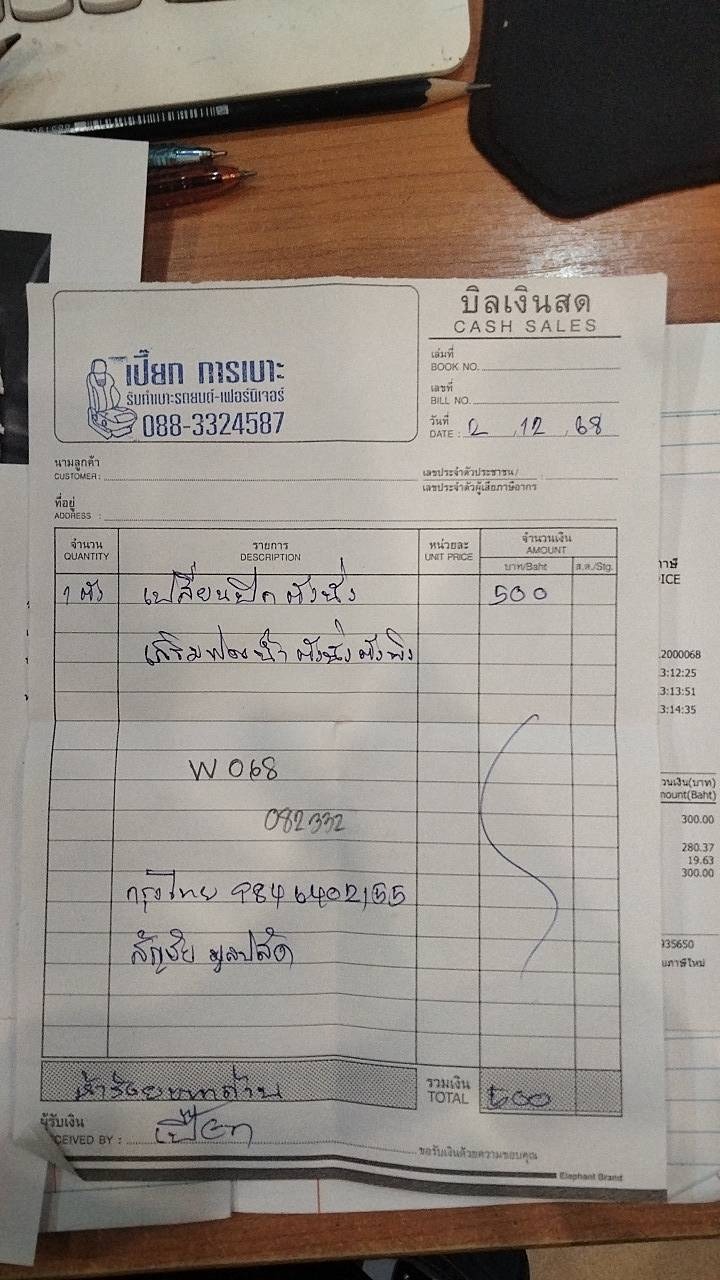 บิลเงินสด
CASH SALES
เปี๊ยก การเบาะ
รับทำเบาะรถยนต์-เฟอร์นิเจอร์
088-3324587
เล่มที่
BOOK NO.
เลขที่
BILL NO.
วันที่
DATE : 2 . 12 . 68
นามลูกค้า
CUSTOMER :
เลขประจำตัวประชาชน/
เลขประจำตัวผู้เสียภาษีอากร
ที่อยู่
ADDRESS :
จำนวน รายการ หน่วยละ จำนวนเงิน
QUANTITY DESCRIPTION UNIT PRICE AMOUNT
บาท/Baht ส.ต./Stg.
1 ตัว เปลี่ยนปีกตัวนั่ง 500
เสริมฟองน้ำ ตัวนั่งตัวพิง
W 068
082332
กรุงไทย 9846402155
สัญชัย
ห้าร้อยบาทถ้วน
รวมเงิน
TOTAL 500
ผู้รับเงิน
CEIVED BY : เปี๊ยก
ขอรับเงินด้วยความขอบคุณ
Elephant Brand
ICE
2000068
3:12:25
3:13:51
3:14:35
วนเงิน(บาท)
mount(Baht)
300.00
280.37
19.63
300.00
935650